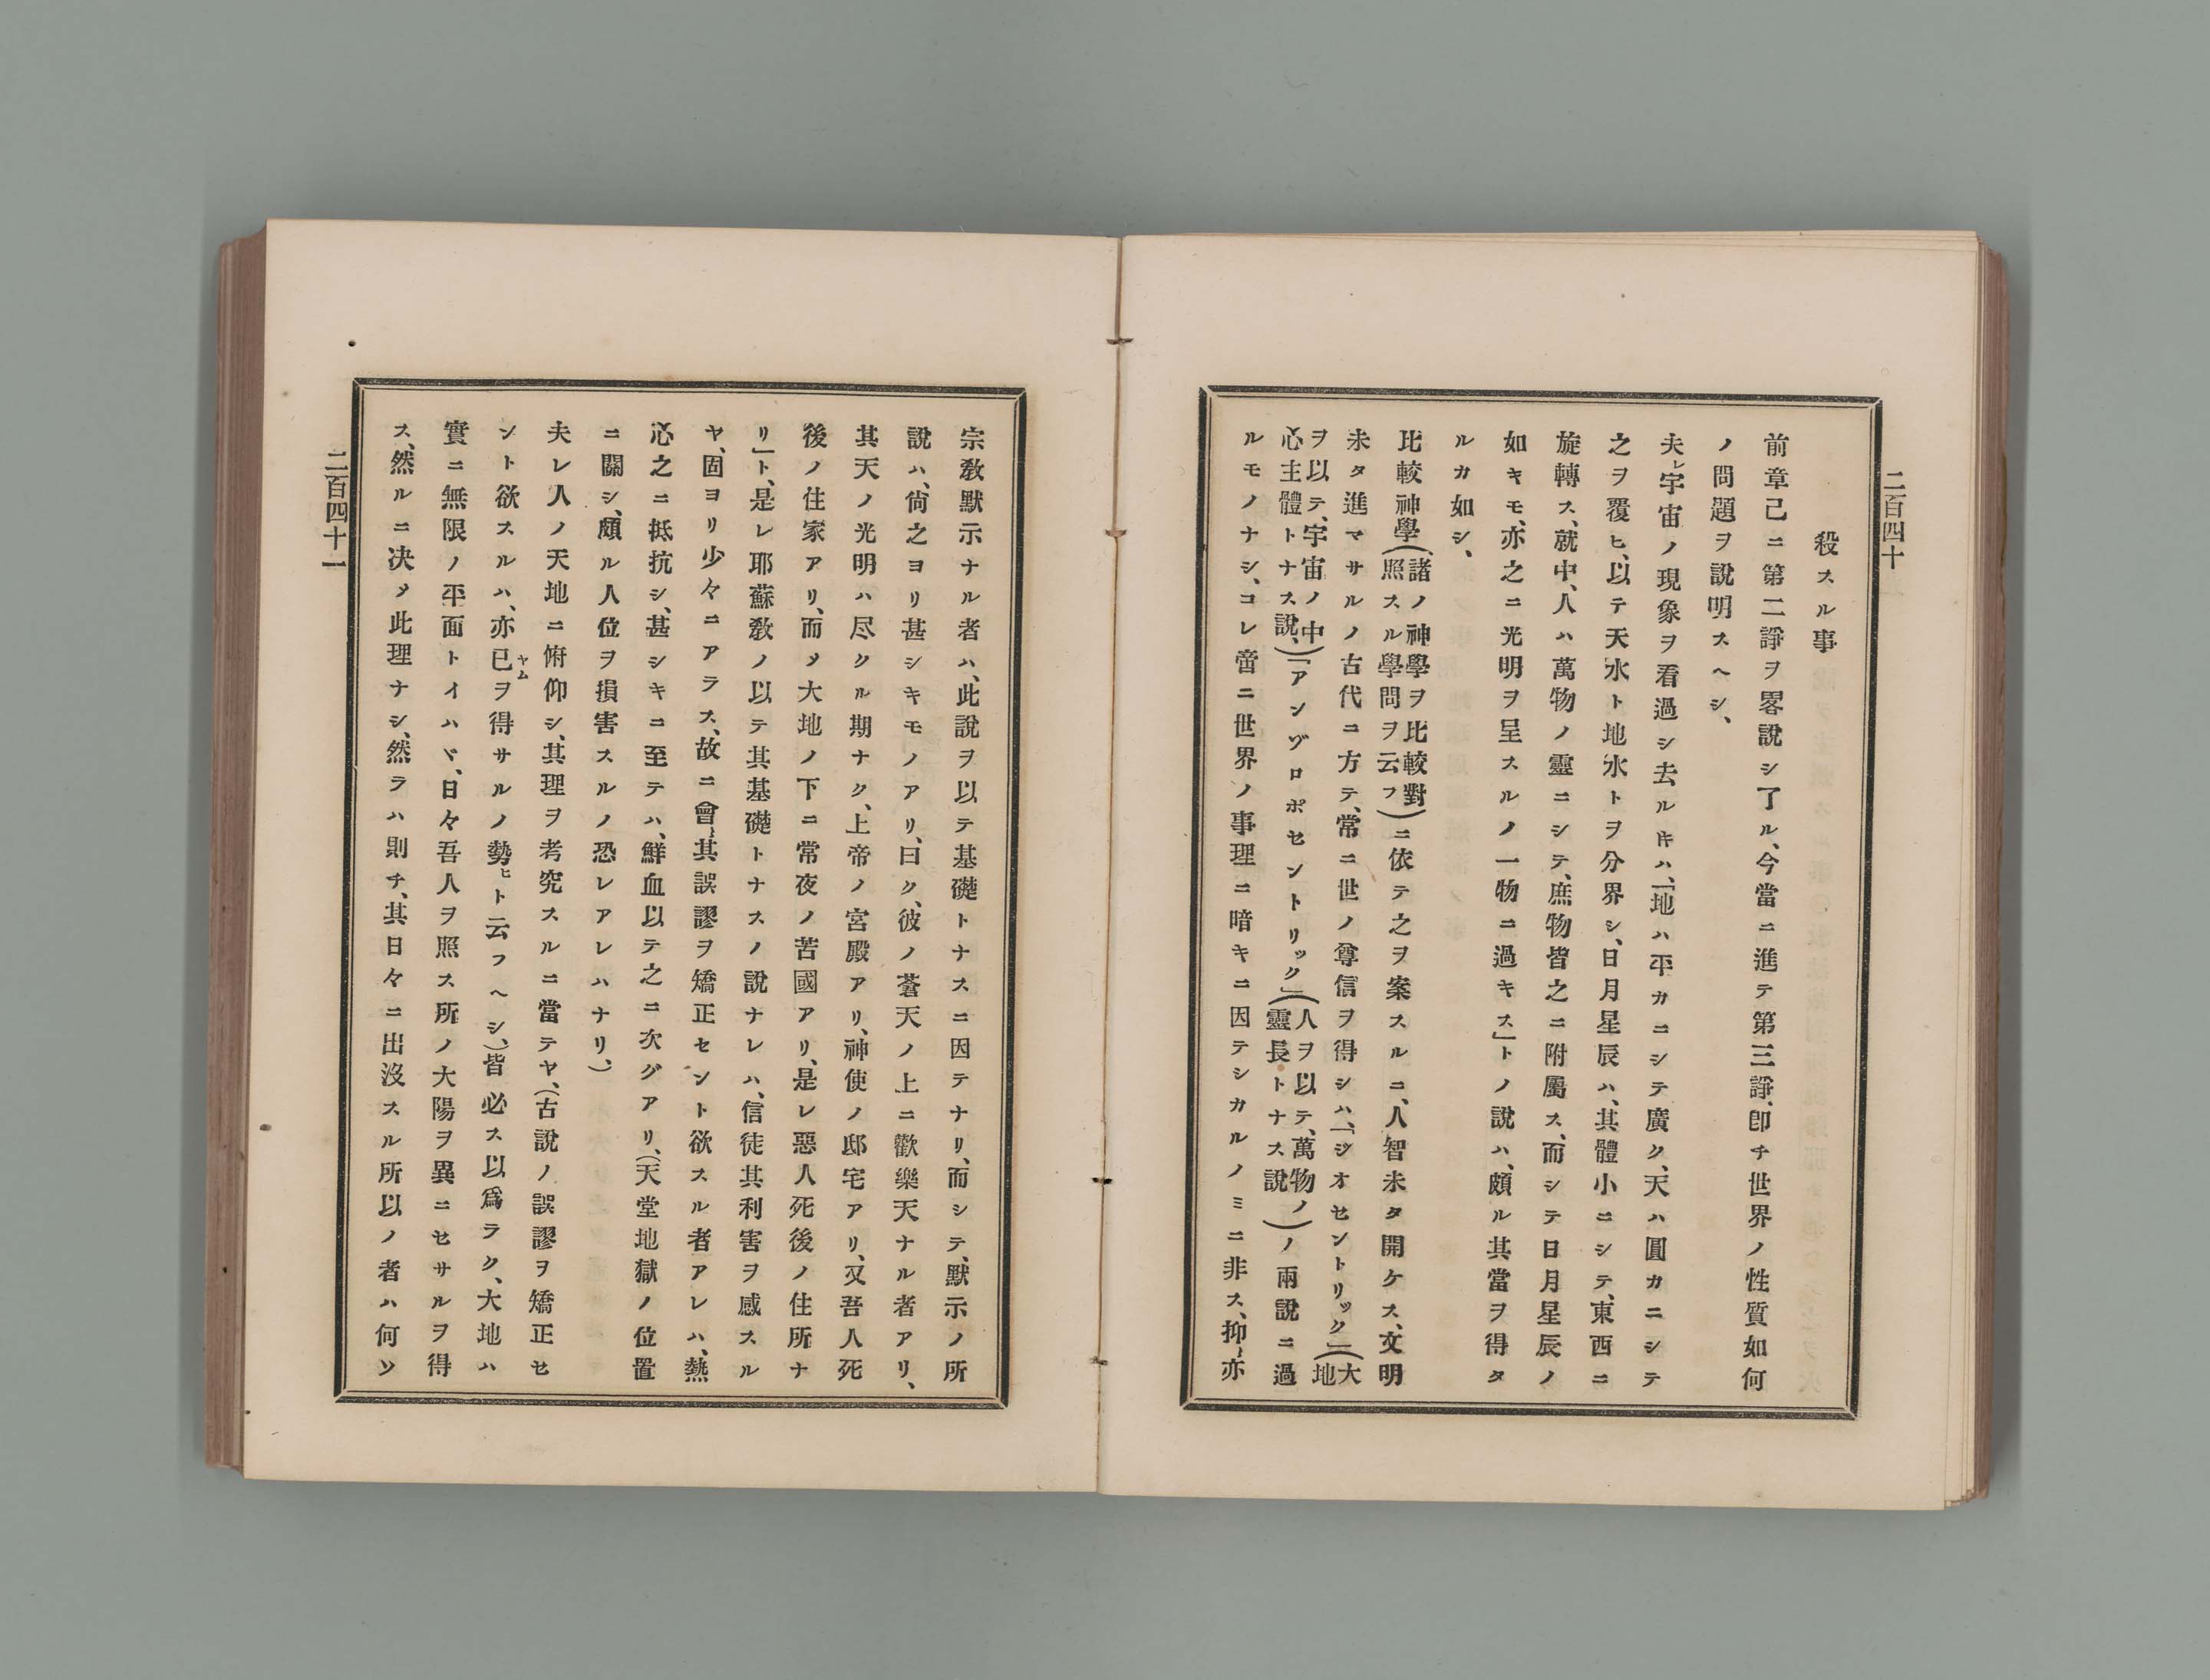 二百四十
殺スル事
前章已ニ第二諍ヲ畧說シ了ル、今當ニ進テ第三諍、卽チ世界ノ性質如何
ノ問題ヲ說明スヘシ、
夫レ宇宙ノ現象ヲ看過シ去ルキハ、「地ハ平カニシテ廣ク、天ハ圓カニシテ
之ヲ覆ヒ、以テ天水ト地水トヲ分界シ、日月星辰ハ、其體小ニシテ、東西ニ
旋轉ス、就中、人ハ萬物ノ靈ニシテ、庶物皆之ニ附屬ス、而シテ日月星辰ノ
如キモ、亦之ニ光明ヲ呈スルノ一物ニ過キス」トノ說ハ、頗ル其當ヲ得タ
ルカ如シ、
比較神學(諸ノ神學ヲ比較對照スル學問ヲ云フ)ニ依テ之ヲ案スルニ、人智未タ開ケス、文明
未タ進マサルノ古代ニ方テ、常ニ世ノ尊信ヲ得シハ、「ジオセントリック」(大地
ヲ以テ、宇宙ノ中心主體トナス說、)「アンヅロポセントリック」(人ヲ以テ、萬物ノ靈長トナス說)ノ兩說ニ過
ルモノナシ、コレ啻ニ世界ノ事理ニ暗キニ因テシカルノミニ非ス、抑亦
宗敎默示ナル者ハ、此說ヲ以テ基礎トナスニ因テナリ、而シテ、默示ノ所
說ハ、尙之ヨリ甚シキモノアリ、曰ク、彼ノ蒼天ノ上ニ歡樂天ナル者アリ、
其天ノ光明ハ尽クル期ナク、上帝ノ宮殿アリ、神使ノ邸宅アリ、又吾人死
後ノ住家アリ、而メ大地ノ下ニ常夜ノ苦國アリ、是レ惡人死後ノ住所ナ
リ」ト、是レ耶蘇敎ノ以テ其基礎トナスノ說ナレハ、信徒其利害ヲ感スル
ヤ、固ヨリ少々ニアラス、故ニ會其誤謬ヲ矯正セント欲スル者アレハ、熱
心之ニ抵抗シ、甚シキニ至テハ、鮮血以テ之ニ次グアリ、(天堂地獄ノ位置
ニ關シ、頗ル人位ヲ損害スルノ恐レアレハナリ、)
夫レ人ノ天地ニ俯仰シ、其理ヲ考究スルニ當テヤ、(古說ノ誤謬ヲ矯正セ
ント欲スルハ、亦已ヤムヲ得サルノ勢ヒト云フヘシ、)皆必ス以爲ラク、大地ハ
實ニ無限ノ平面トイハヾ、日々吾人ヲ照ス所ノ大陽ヲ異ニセサルヲ得
ス、然ルニ决メ此理ナシ、然ラハ則チ、其日々ニ出沒スル所以ノ者ハ何ソ
二百四十一